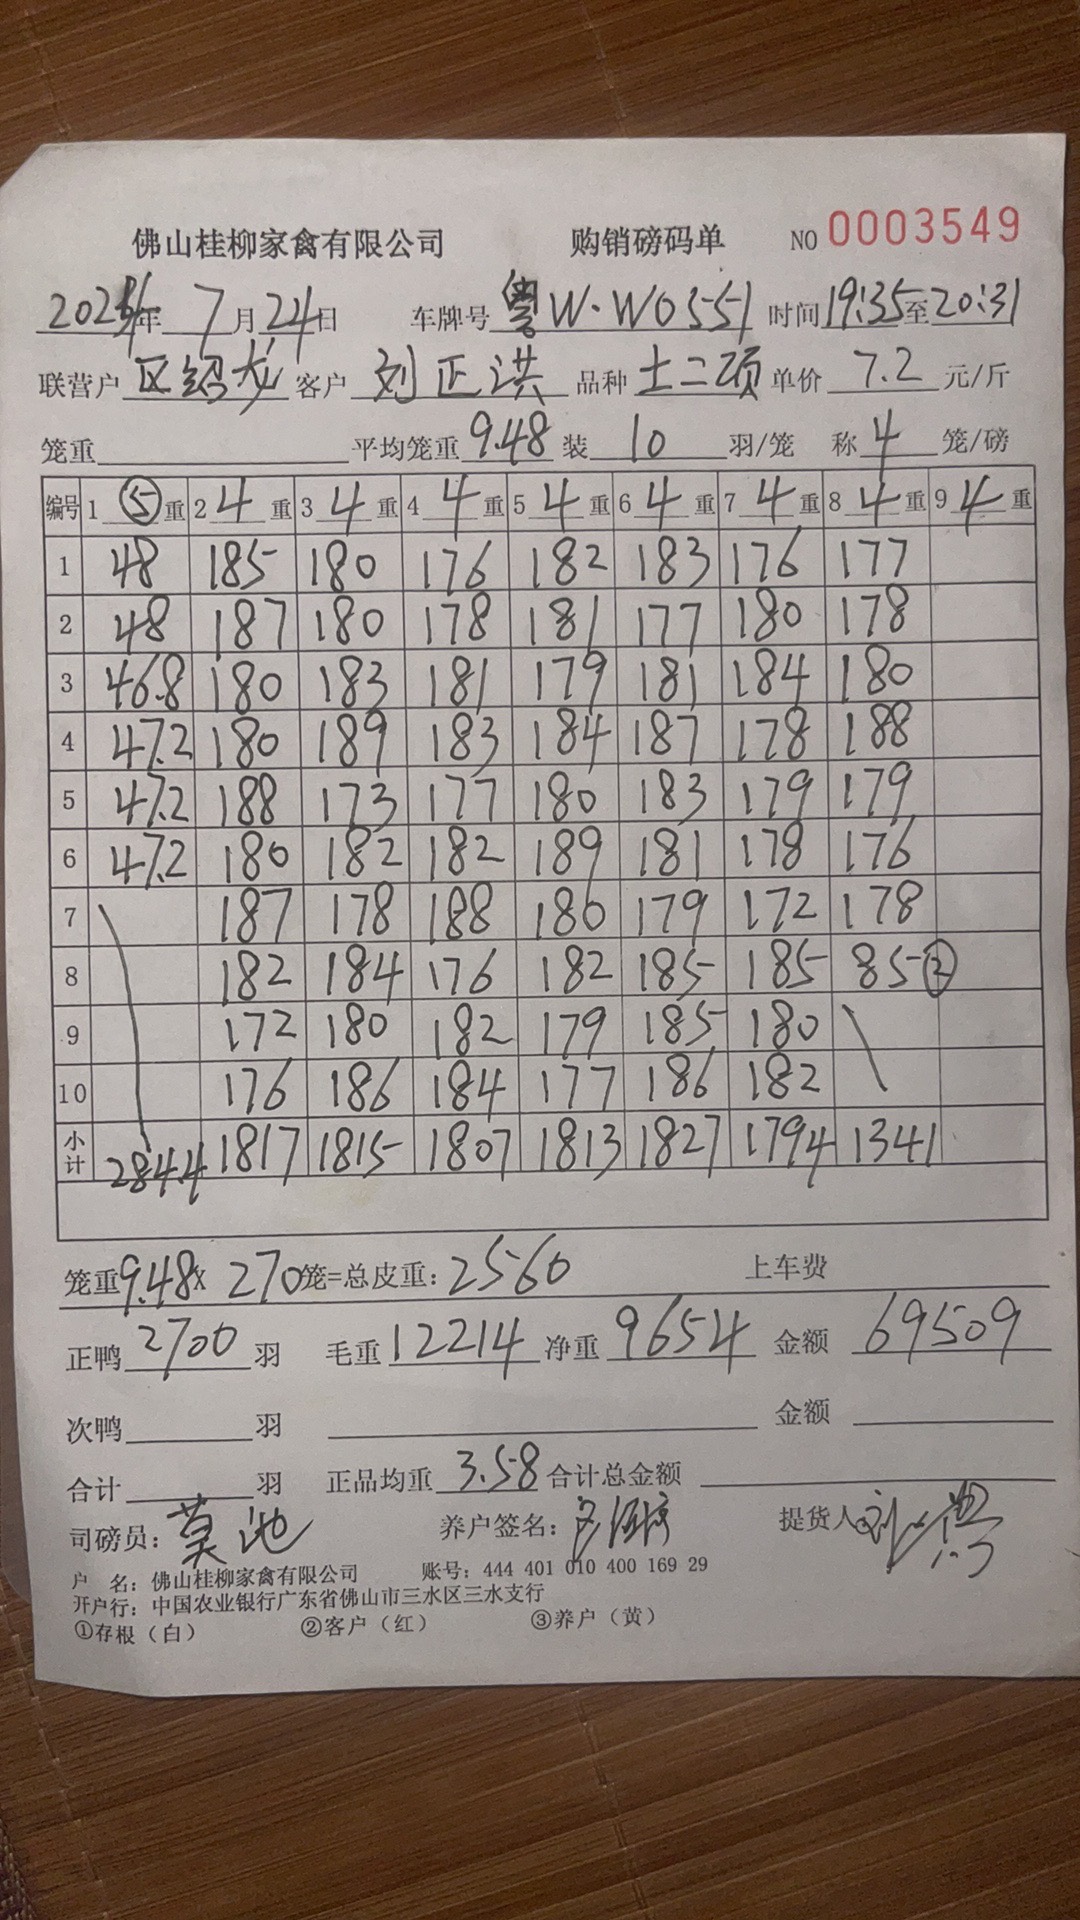 佛山桂柳家禽有限公司 购销磅码单 NO 0003549
年 7 月 24 日 车牌号 粤W·W0551 时间 19:35 至 20:31
联营户 区绍龙 客户 刘正洪 品种 土二项 单价 7.2 元/斤
笼重 平均笼重 9.48 装 10 羽/笼 称 4 笼/磅
编号 1 ⑤ 重 2 4 重 3 4 重 4 4 重 5 4 重 6 4 重 7 4 重 8 4 重 9 4 重
1 48 185 180 176 182 183 176 177
2 48 187 180 178 181 177 180 178
3 46.8 180 183 181 179 181 184 180
4 47.2 180 189 183 184 187 178 188
5 47.2 188 173 177 180 183 179 179
6 47.2 180 182 182 189 181 178 176
7 187 178 188 180 179 172 178
8 182 184 176 182 185 185 85②
9 172 180 182 179 185 180
10 176 186 184 177 186 182
小计 284.4 1817 1815 1807 1813 1827 1794 1341
笼重 9.48 X 270 笼=总皮重: 2560 上车费
正鸭 2700 羽 毛重 12214 净重 9654 金额 69509
次鸭 羽 金额
合计 羽 正品均重 3.58 合计总金额
司磅员: 莫池 养户签名: 提货人
户 名: 佛山桂柳家禽有限公司 账号: 444 401 010 400 169 29
开户行: 中国农业银行广东省佛山市三水区三水支行
①存根(白) ②客户(红) ③养户(黄)